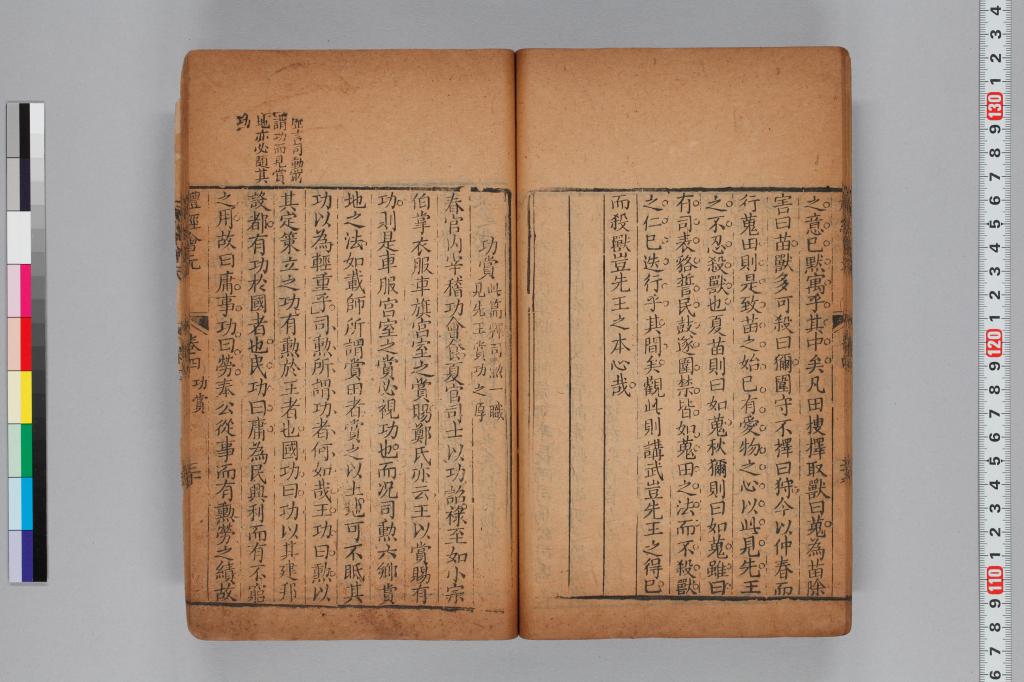 之意已默寓乎其中矣凡田搜擇取獸曰蒐為苗除
害曰苗獸多可殺曰獮圍守不擇曰狩今以仲春而
行蒐田則是致苗之始已有愛物之心以此見先王
之不忍殺獸也夏苗則曰如蒐秋獮則曰如蒐雖曰
有司表貉誓民鼓遂圍禁皆如蒐田之法而不殺獸
之仁已迭行乎其間矣觀此則講武豈先王之得已
而殺獸豈先王之本心哉
功賞
此篇釋司勳一職
見先王賞功之厚
春官内宰稽功會食夏官司士以功詔祿至如小宗
伯掌衣服車旗宮室之賞賜鄭氏亦云王以賞賜有
功則是車服宮室之賞必視功也而况司勳六鄉賞
地之法如載師所謂賞田者賞之以土地可不眡其
功以為輕重乎司勳所謂功者何如哉王功曰勳以
其定策立之功有勳於王者也國功曰功以其建邦
設都有功於國者也民功曰庸為民興利而有不窮
之用故曰庸事功曰勞奉公從事而有勲勞之績故
謂功而見賞
地亦必隨其
功
禮經會元
卷四
功賞
三十
110
120
130